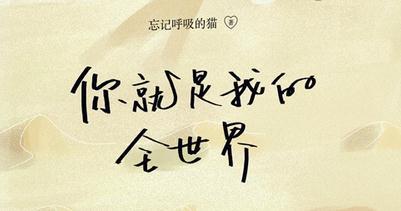 忘记呼吸的猫 著
你就是我的
全世界